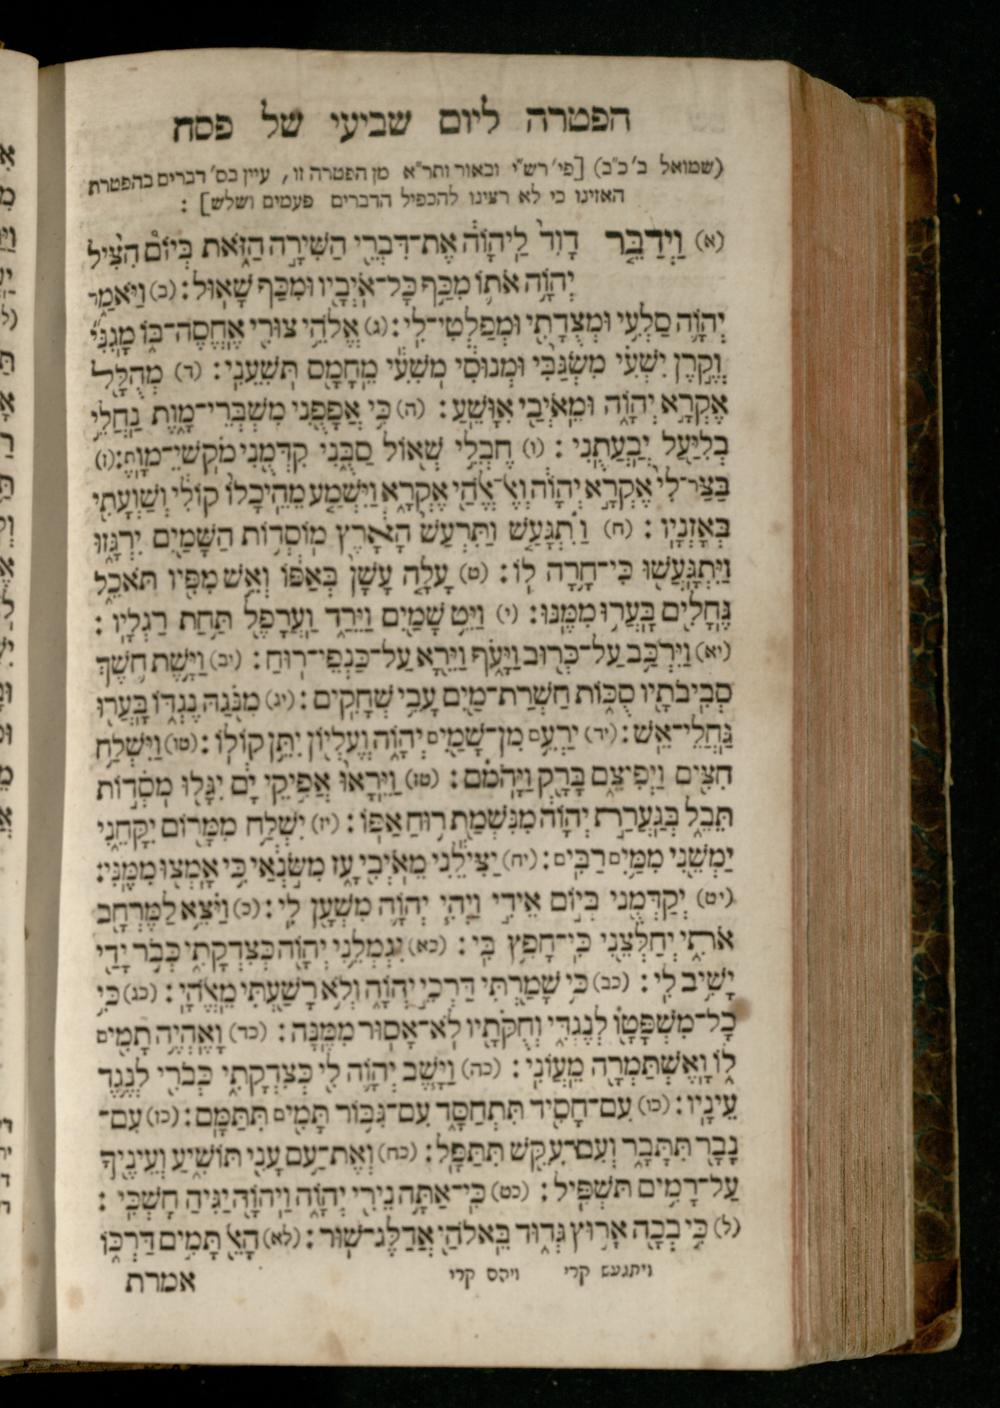 הפטרה ליום שביעי של פסח
(שמואל ב׳ כ״ב) [פי׳ רש״י ובאור ותר״א מן הפטרה זו, עיין בס׳ דברים בהפטרת
האזינו כי לא רצינו להכפיל הדברים פעמים ושלש] :
(א) וַיְדַבֵּר דָוִד לַיהוָֹה אֶת־דִּבְרֵי הַשִּׁירָה הַזֹּאת בְּיוֹם הִצִּיל
יְהוָֹה אֹתוֹ מִכַּף כָּל־אֹיְבָיו וּמִכַּף שָׁאוּל: (ב) וַיֹּאמַר
יְהוָֹה סַלְעִי וּמְצֻדָתִי וּמְפַלְטִי־לִי: (ג) אֱלֹהֵי צוּרִי אֶחֱסֶה־בּוֹ מָגִנִּי
וְקֶרֶן יִשְׁעִי מִשְׂגַּבִּי וּמְנוּסִי מֹשִׁעִי מֵחָמָס תּשִׁעֵנִי: (ד) מְהֻלָּל
אֶקְרָא יְהוָֹה וּמֵאֹיְבַי אִוָּשֵׁעַ: (ה) כִּי אֲפָפֻנִי מִשְׁבְּרֵי־מָוֶת נַחֲלֵי
בְלִיַּעַל יְבַעֲתֻנִי: (ו) חֶבְלֵי שְׁאוֹל סַבֻּנִי קִדְּמֻנִי מֹקְשֵׁי־מָוֶת: (ז)
בַּצַּר־לִי אֶקְרָא יְהוָֹה וְאֶל־אֱלֹהַי אֶקְרָא וַיִּשְׁמַע מֵהֵיכָלוֹ קוֹלִי וְשַׁוְעָתִי
בְּאָזְנָיו: (ח) וַיִתְגָּעַשׁ וַתִּרְעַשׁ הָאָרֶץ מוֹסְדוֹת הַשָּׁמַיִם יִרְגָּזוּ
וַיִּתְגָּעֲשׁוּ כִּי־חָרָה לוֹ: (ט) עָלָה עָשָׁן בְּאַפּוֹ וְאֵשׁ מִפִּיו תֹּאכֵל
גֶּחָלִים בָּעֲרוּ מִמֶּנּוּ: (י) וַיֵּט שָׁמַיִם וַיֵּרַד וַעֲרָפֶל תַּחַת רַגְלָיו:
(יא) וַיִּרְכַּב עַל־כְּרוּב וַיָּעֹף וַיֵּרָא עַל־כַּנְפֵי־רוּחַ: (יב) וַיָּשֶׁת חֹשֶׁךְ
סְבִיבֹתָיו סֻכּוֹת חַשְׁרַת־מַיִם עָבֵי שְׁחָקִים: (יג) מִנֹּגַהּ נֶגְדּוֹ בָּעֲרוּ
גַּחֲלֵי־אֵשׁ: (יד) יַרְעֵם מִן־שָׁמַיִם יְהוָֹה וְעֶלְיוֹן יִתֵּן קוֹלוֹ: (טו) וַיִּשְׁלַח
חִצִּים וַיְפִיצֵם בָּרָק וַיָּהֹמם: (טז) וַיֵּרָאוּ אֲפִיקֵי יָם יִגָּלוּ מֹסְדוֹת
תֵּבֵל בְּגַעֲרַת יְהוָֹה מִנִּשְׁמַת רוּחַ אַפּוֹ: (יז) יִשְׁלַח מִמָּרוֹם יִקָּחֵנִי
יַמְשֵׁנִי מִמַּיִם רַבִּים: (יח) יַצִּילֵנִי מֵאֹיְבִי עָז מִשֹּׂנְאַי כִּי אָמְצוּ מִמֶּנִּי:
(יט) יְקַדְּמֻנִי בְּיוֹם אֵידִי וַיְהִי יְהוָֹה מִשְׁעָן לִי: (כ) וַיֹּצֵא לַמֶּרְחָב
אֹתִי יְחַלְּצֵנִי כִּי־חָפֵץ בִּי: (כא) יִגְמְלֵנִי יְהוָֹה כְּצִדְקָתִי כְּבֹר יָדַי
יָשִׁיב לִי: (כב) כִּי שָׁמַרְתִּי דַּרְכֵי יְהוָֹה וְלֹא רָשַׁעְתִּי מֵאֱלֹהָי: (כג) כִּי
כָל־מִשְׁפָּטָו לְנֶגְדִּי וְחֻקֹּתָיו לֹא־אָסוּר מִמֶּנָּה: (כד) וָאֶהְיֶה תָמִים
לוֹ וָאֶשְׁתַּמְּרָה מֵעֲוֹנִי: (כה) וַיָּשֶׁב יְהוָֹה לִי כְּצִדְקָתִי כְּבֹרִי לְנֶגֶד
עֵינָיו: (כו) עִם־חָסִיד תִּתְחַסָּד עִם־גִּבּוֹר תָּמִים תִּתַּמָּם: (כז) עִם־
נָבָר תִּתָּבָר וְעִם־עִקֵּשׁ תִּתַּפָּל: (כח) וְאֶת־עַם עָנִי תּוֹשִׁיעַ וְעֵינֶיךָ
עַל־רָמִים תַּשְׁפִּיל: (כט) כִּי־אַתָּה נֵירִי יְהוָֹה וַיהוָֹה יַגִּיהַּ חָשְׁכִּי:
(ל) כִּי בְכָה אָרוּץ גְּדוּד בֵּאלֹהַי אֲדַלֶּג־שׁוּר: (לא) הָאֵל תָּמִים דַּרְכּוֹ
ויתגעש קרי ויהם קרי
אמרת